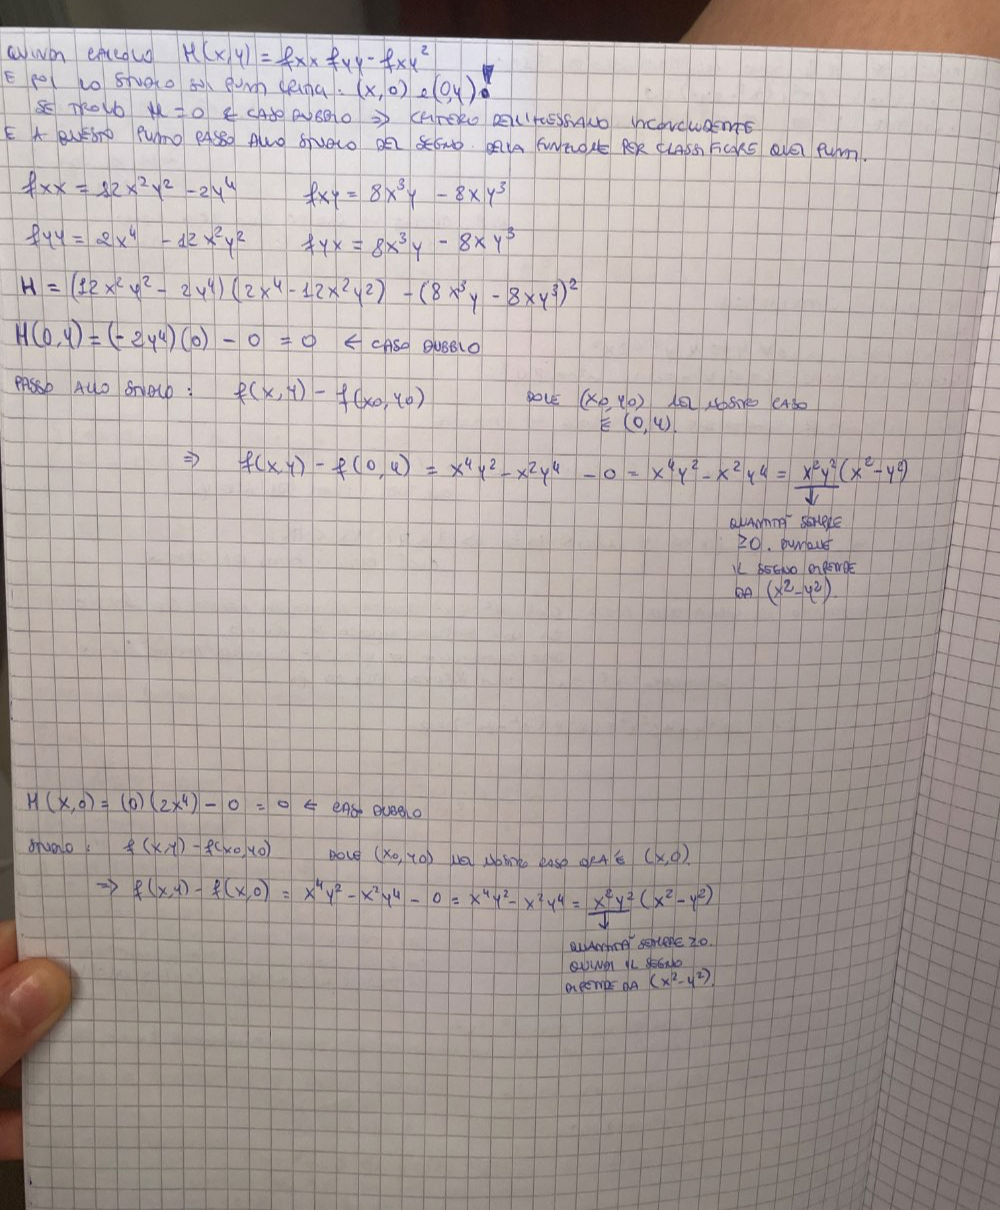 QUINDI CALCOLO H(x,y) = fxx fyy - fxy²
E POI LO STUDIO SUI PUNTI CRITICI. (x,0) e (0,y)!
SE TROVO H = 0 È CASO DUBBIO ⇒ CRITERIO DELL'HESSIANO INCONCLUDENTE
E A QUESTO PUNTO PASSO ALLO STUDIO DEL SEGNO DELLA FUNZIONE PER CLASSIFICARE QUEI PUNTI.
fxx = 12x²y² - 2y⁴ fxy = 8x³y - 8xy³
fyy = 2x⁴ - 12x²y² fyx = 8x³y - 8xy³
H = (12x²y² - 2y⁴)(2x⁴ - 12x²y²) - (8x³y - 8xy³)²
H(0,y) = (-2y⁴)(0) - 0 = 0 ← CASO DUBBIO
PASSO ALLO STUDIO: f(x,y) - f(x0,y0) DOVE (x0,y0) NEL NOSTRO CASO
È (0,y).
⇒ f(x,y) - f(0,y) = x⁴y² - x²y⁴ - 0 = x⁴y² - x²y⁴ = x²y²(x² - y²)
↓
QUANTITÀ SEMPRE
≥0. DUNQUE
IL SEGNO DIPENDE
DA (x²-y²).
H(x,0) = (0)(2x⁴) - 0 = 0 ← CASO DUBBIO
STUDIO: f(x,y) - f(x0,y0) DOVE (x0,y0) NEL NOSTRO CASO ORA È (x,0).
⇒ f(x,y) - f(x,0) = x⁴y² - x²y⁴ - 0 = x⁴y² - x²y⁴ = x²y²(x² - y²)
↓
QUANTITÀ SEMPRE ≥0.
QUINDI IL SEGNO
DIPENDE DA (x²-y²).